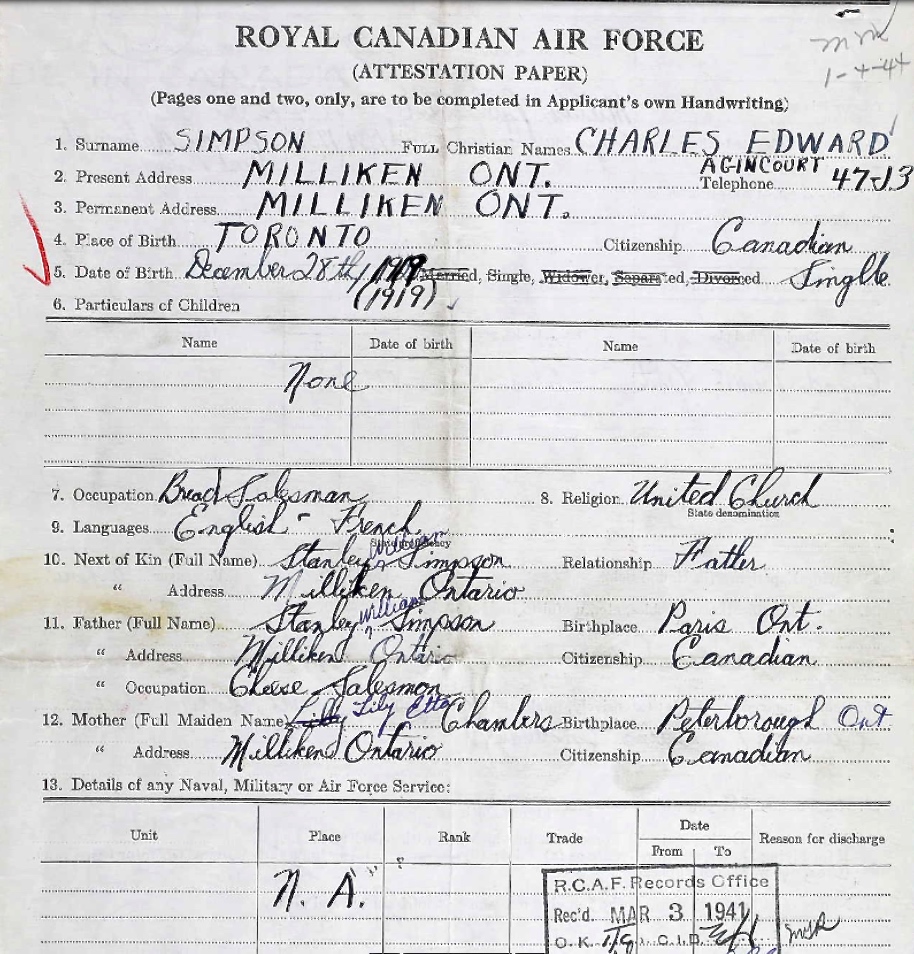 ROYAL CANADIAN AIR FORCE
1-4-44
(ATTESTATION PAPER)
(Pages one and two, only, are to be completed in Applicant's own Handwriting)
1. Surname SIMPSON FULL Christian Names CHARLES EDWARD
2. Present Address MILLIKEN ONT. Telephone AGINCOURT 47J3
3. Permanent Address MILLIKEN ONT.
4. Place of Birth TORONTO Citizenship Canadian
5. Date of Birth December 28th, 1919 Married, Single, Widower, Separated, Divorced Singlle
(1919)
6. Particulars of Children
Name Date of birth Name Date of birth
None
7. Occupation Bread Salesman 8. Religion United Church
State denomination
9. Languages English - French
10. Next of Kin (Full Name) Stanley William Simpson Relationship Father
" Address Milliken Ontario
11. Father (Full Name) Stanley William Simpson Birthplace Paris Ont.
" Address Milliken Ontario Citizenship Canadian
" Occupation Cheese Salesmon
12. Mother (Full Maiden Name) Lilly Lily Etta Chambers Birthplace Peterborough Ont
" Address Milliken Ontario Citizenship Canadian
13. Details of any Naval, Military or Air Force Service:
Unit Place Rank Trade Date Reason for discharge
From To
N. A.
R.C.A.F. Records Office
Rec'd. MAR 3 1941
O.K. C.I.D.